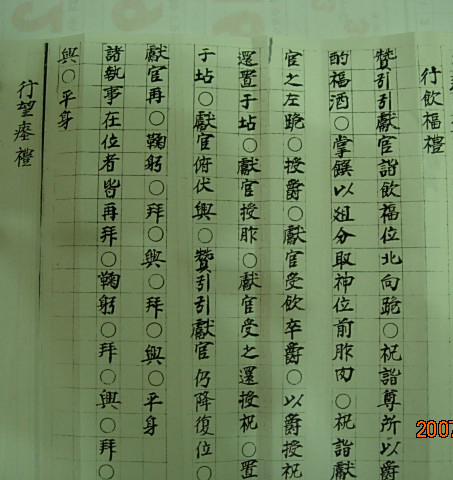 行飮福禮
贊引引獻官詣飮福位北向跪○祝詣尊所以爵
酌福酒○掌饌以俎分取神位前胙肉○祝詣獻
官之左跪○授爵○獻官受飮卒爵○以爵授祝
還置于坫○獻官授胙○獻官受之還授祝○置
于坫○獻官俯伏興○贊引引獻官仍降復位○
獻官再○鞠躬○拜○興○拜○興○平身
諸執事在位者皆再拜○鞠躬○拜○興○拜○
興○平身
行望瘞禮
2007